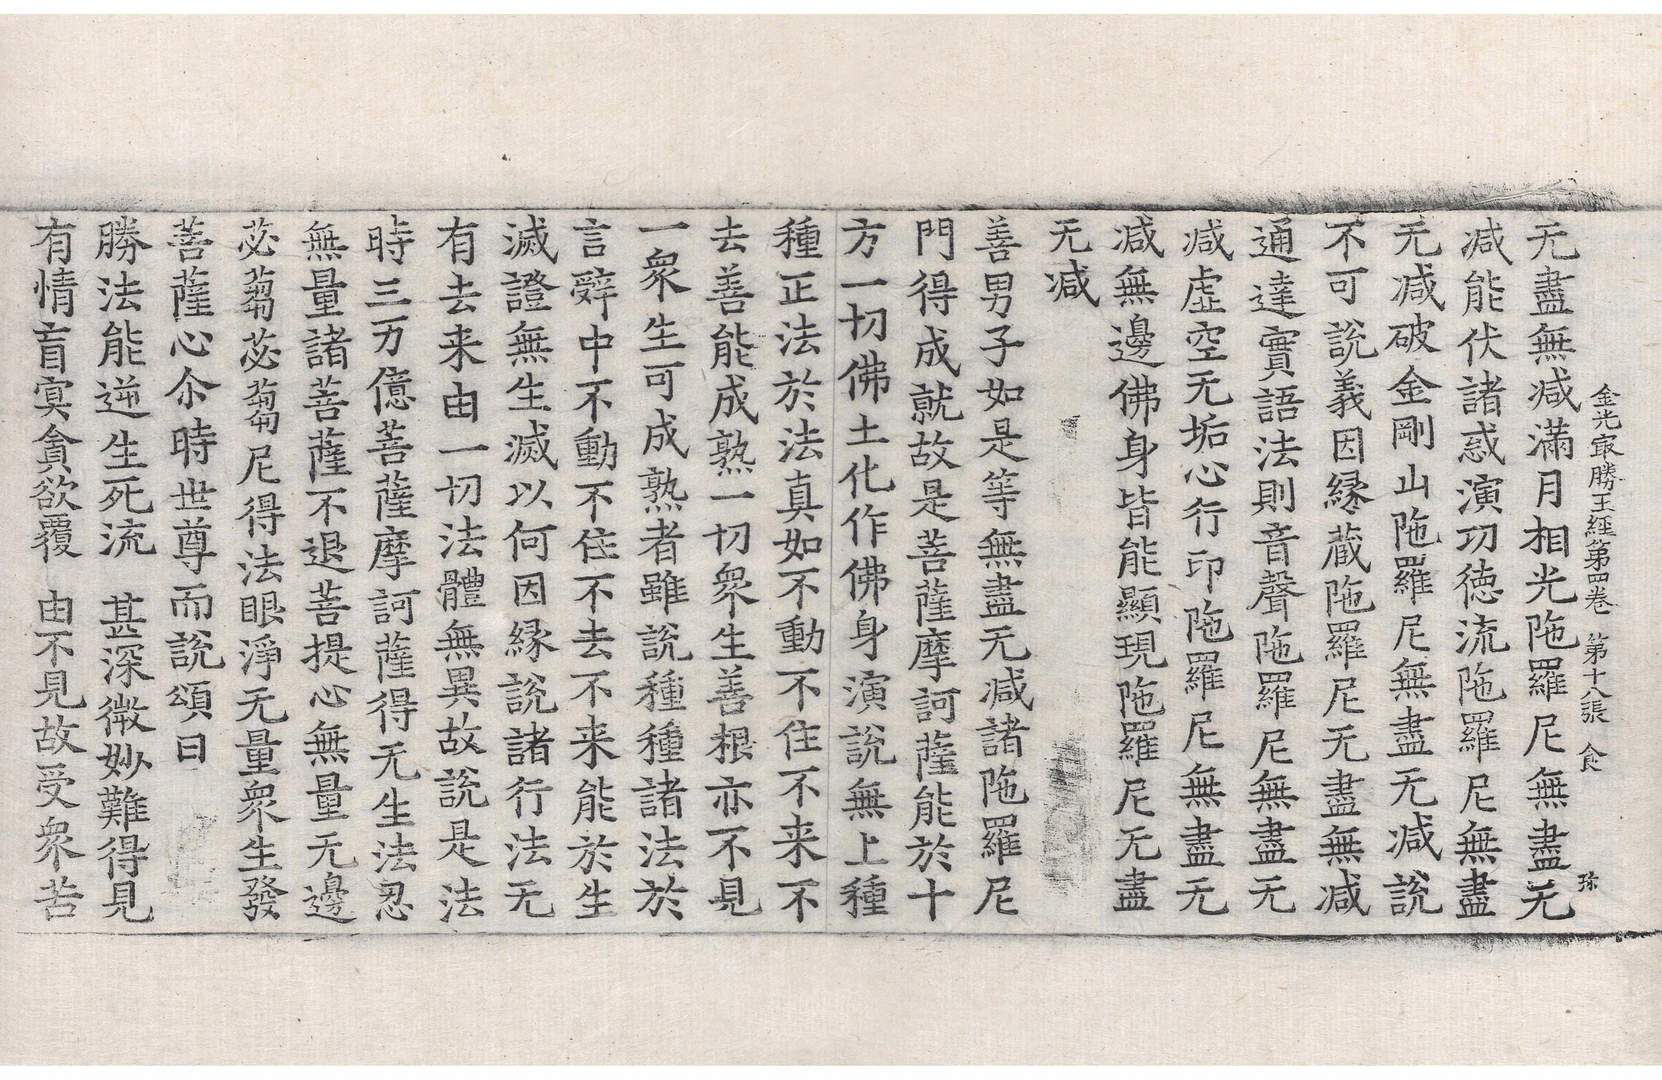 金光冣勝王經第四卷 第十八張 食
无盡無减滿月相光陁羅尼無盡无
减能伏諸惑演功德流陁羅尼無盡
无减破金剛山陁羅尼無盡无减說
不可說義因縁蔵陁羅尼无盡無减
通達實語法則音聲陁羅尼無盡无
减虛空无垢心行印陁羅尼無盡无
减無邊佛身皆能顯現陁羅尼无盡
无减
善男子如是等無盡无减諸陁羅尼
門得成就故是菩薩摩訶薩能於十
方一切佛土化作佛身演說無上種
種正法於法真如不動不住不来不
去善能成熟一切衆生善根亦不見
一衆生可成熟者雖說種種諸法於
言辝中不動不住不去不来能於生
滅證無生滅以何因縁說諸行法无
有去来由一切法體無異故說是法
時三万億菩薩摩訶薩得无生法忍
無量諸菩薩不退菩提心無量无邊
苾蒭苾蒭尼得法眼淨无量衆生發
菩薩心尒時世尊而說頌曰
勝法能逆生死流 甚深微妙難得見
有情盲冥貪欲覆 由不見故受衆苦